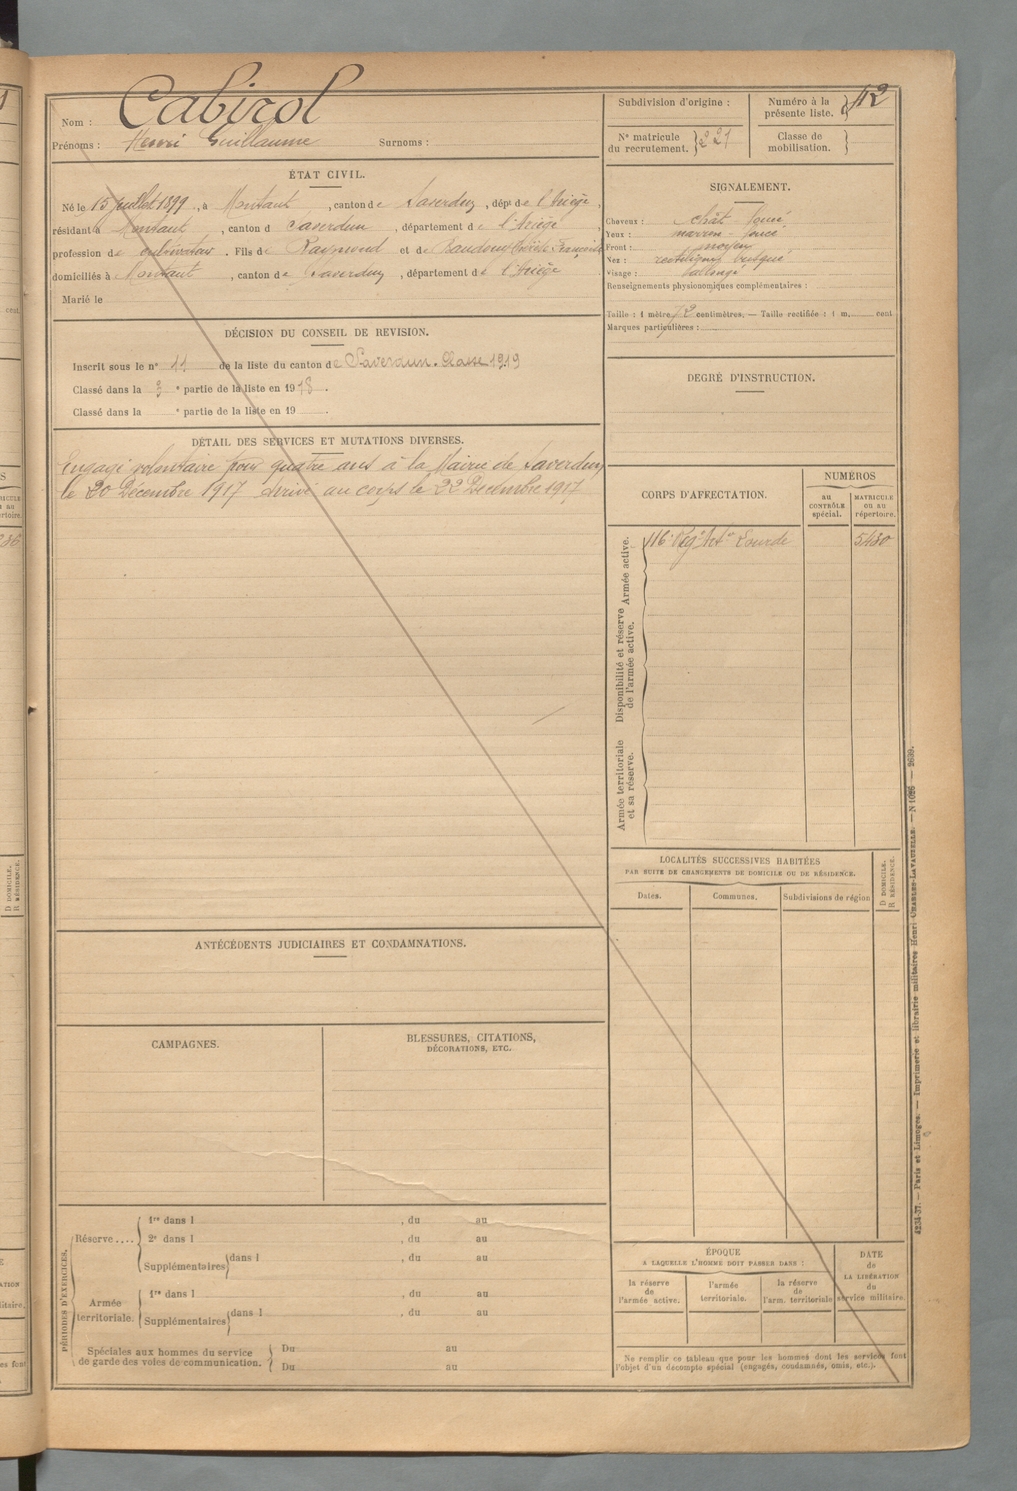 Nom : Cabirol
Prénoms : Henri Guillaume Surnoms :
ÉTAT CIVIL.
Né le 15 juillet 1899, à Montaut, canton de Saverdun, dépt de l'Ariège,
résidant à Montaut, canton d Saverdun, département de l'Ariège,
profession de cultivateur. Fils de Raymond et de
domiciliés à Montaut, canton de Saverdun, département de l'Ariège
Marié le
DÉCISION DU CONSEIL DE REVISION.
Inscrit sous le n° 11 de la liste du canton de Saverdun. Classe 1919
Classé dans la 3 e partie de la liste en 1918.
Classé dans la e partie de la liste en 19 .
DÉTAIL DES SERVICES ET MUTATIONS DIVERSES.
Engagé volontaire pour quatre ans à la Mairie de Saverdun
le 20 Décembre 1917 arrivé au corps le 22 Décembre 1917
ANTÉCÉDENTS JUDICIAIRES ET CONDAMNATIONS.
CAMPAGNES.
BLESSURES, CITATIONS,
DÉCORATIONS, ETC.
PÉRIODES D'EXERCICES.
Réserve ....
1re dans l , du au
2e dans l , du au
Supplémentaires dans l , du au
Armée
territoriale.
1re dans l , du au
Supplémentaires dans l , du au
Spéciales aux hommes du service
de garde des voies de communication.
Du au
Du au
Subdivision d'origine :
Numéro à la
présente liste. 112
N° matricule
du recrutement. 221
Classe de
mobilisation.
SIGNALEMENT.
Cheveux : chât foncé
Yeux : marron foncé
Front : moyen
Nez : rectiligne busqué
Visage : allongé
Renseignements physionomiques complémentaires :
Taille : 1 mètre 72 centimètres. — Taille rectifiée : 1 m. cent
Marques particulières :
DEGRÉ D'INSTRUCTION.
CORPS D'AFFECTATION.
NUMÉROS
au
CONTRÔLE
spécial.
MATRICULE
ou au
répertoire.
Armée active.
116e Régt Artie Lourde 5430
Disponibilité et réserve
de l'armée active.
Armée territoriale
et sa réserve.
LOCALITÉS SUCCESSIVES HABITÉES
PAR SUITE DE CHANGEMENTS DE DOMICILE OU DE RÉSIDENCE.
Dates. Communes. Subdivisions de région
D DOMICILE.
R RÉSIDENCE.
ÉPOQUE
A LAQUELLE L'HOMME DOIT PASSER DANS :
la réserve
de
l'armée active.
l'armée
territoriale.
la réserve
de
l'arm. territoriale
DATE
de
LA LIBÉRATION
du
service militaire.
Ne remplir ce tableau que pour les hommes dont les services font
l'objet d'un décompte spécial (engagés, condamnés, omis, etc.).
4234-37. — Paris et Limoges. — Imprimerie et librairie militaires Henri CHARLES-LAVAUZELLE. — N 1026 — 2639.